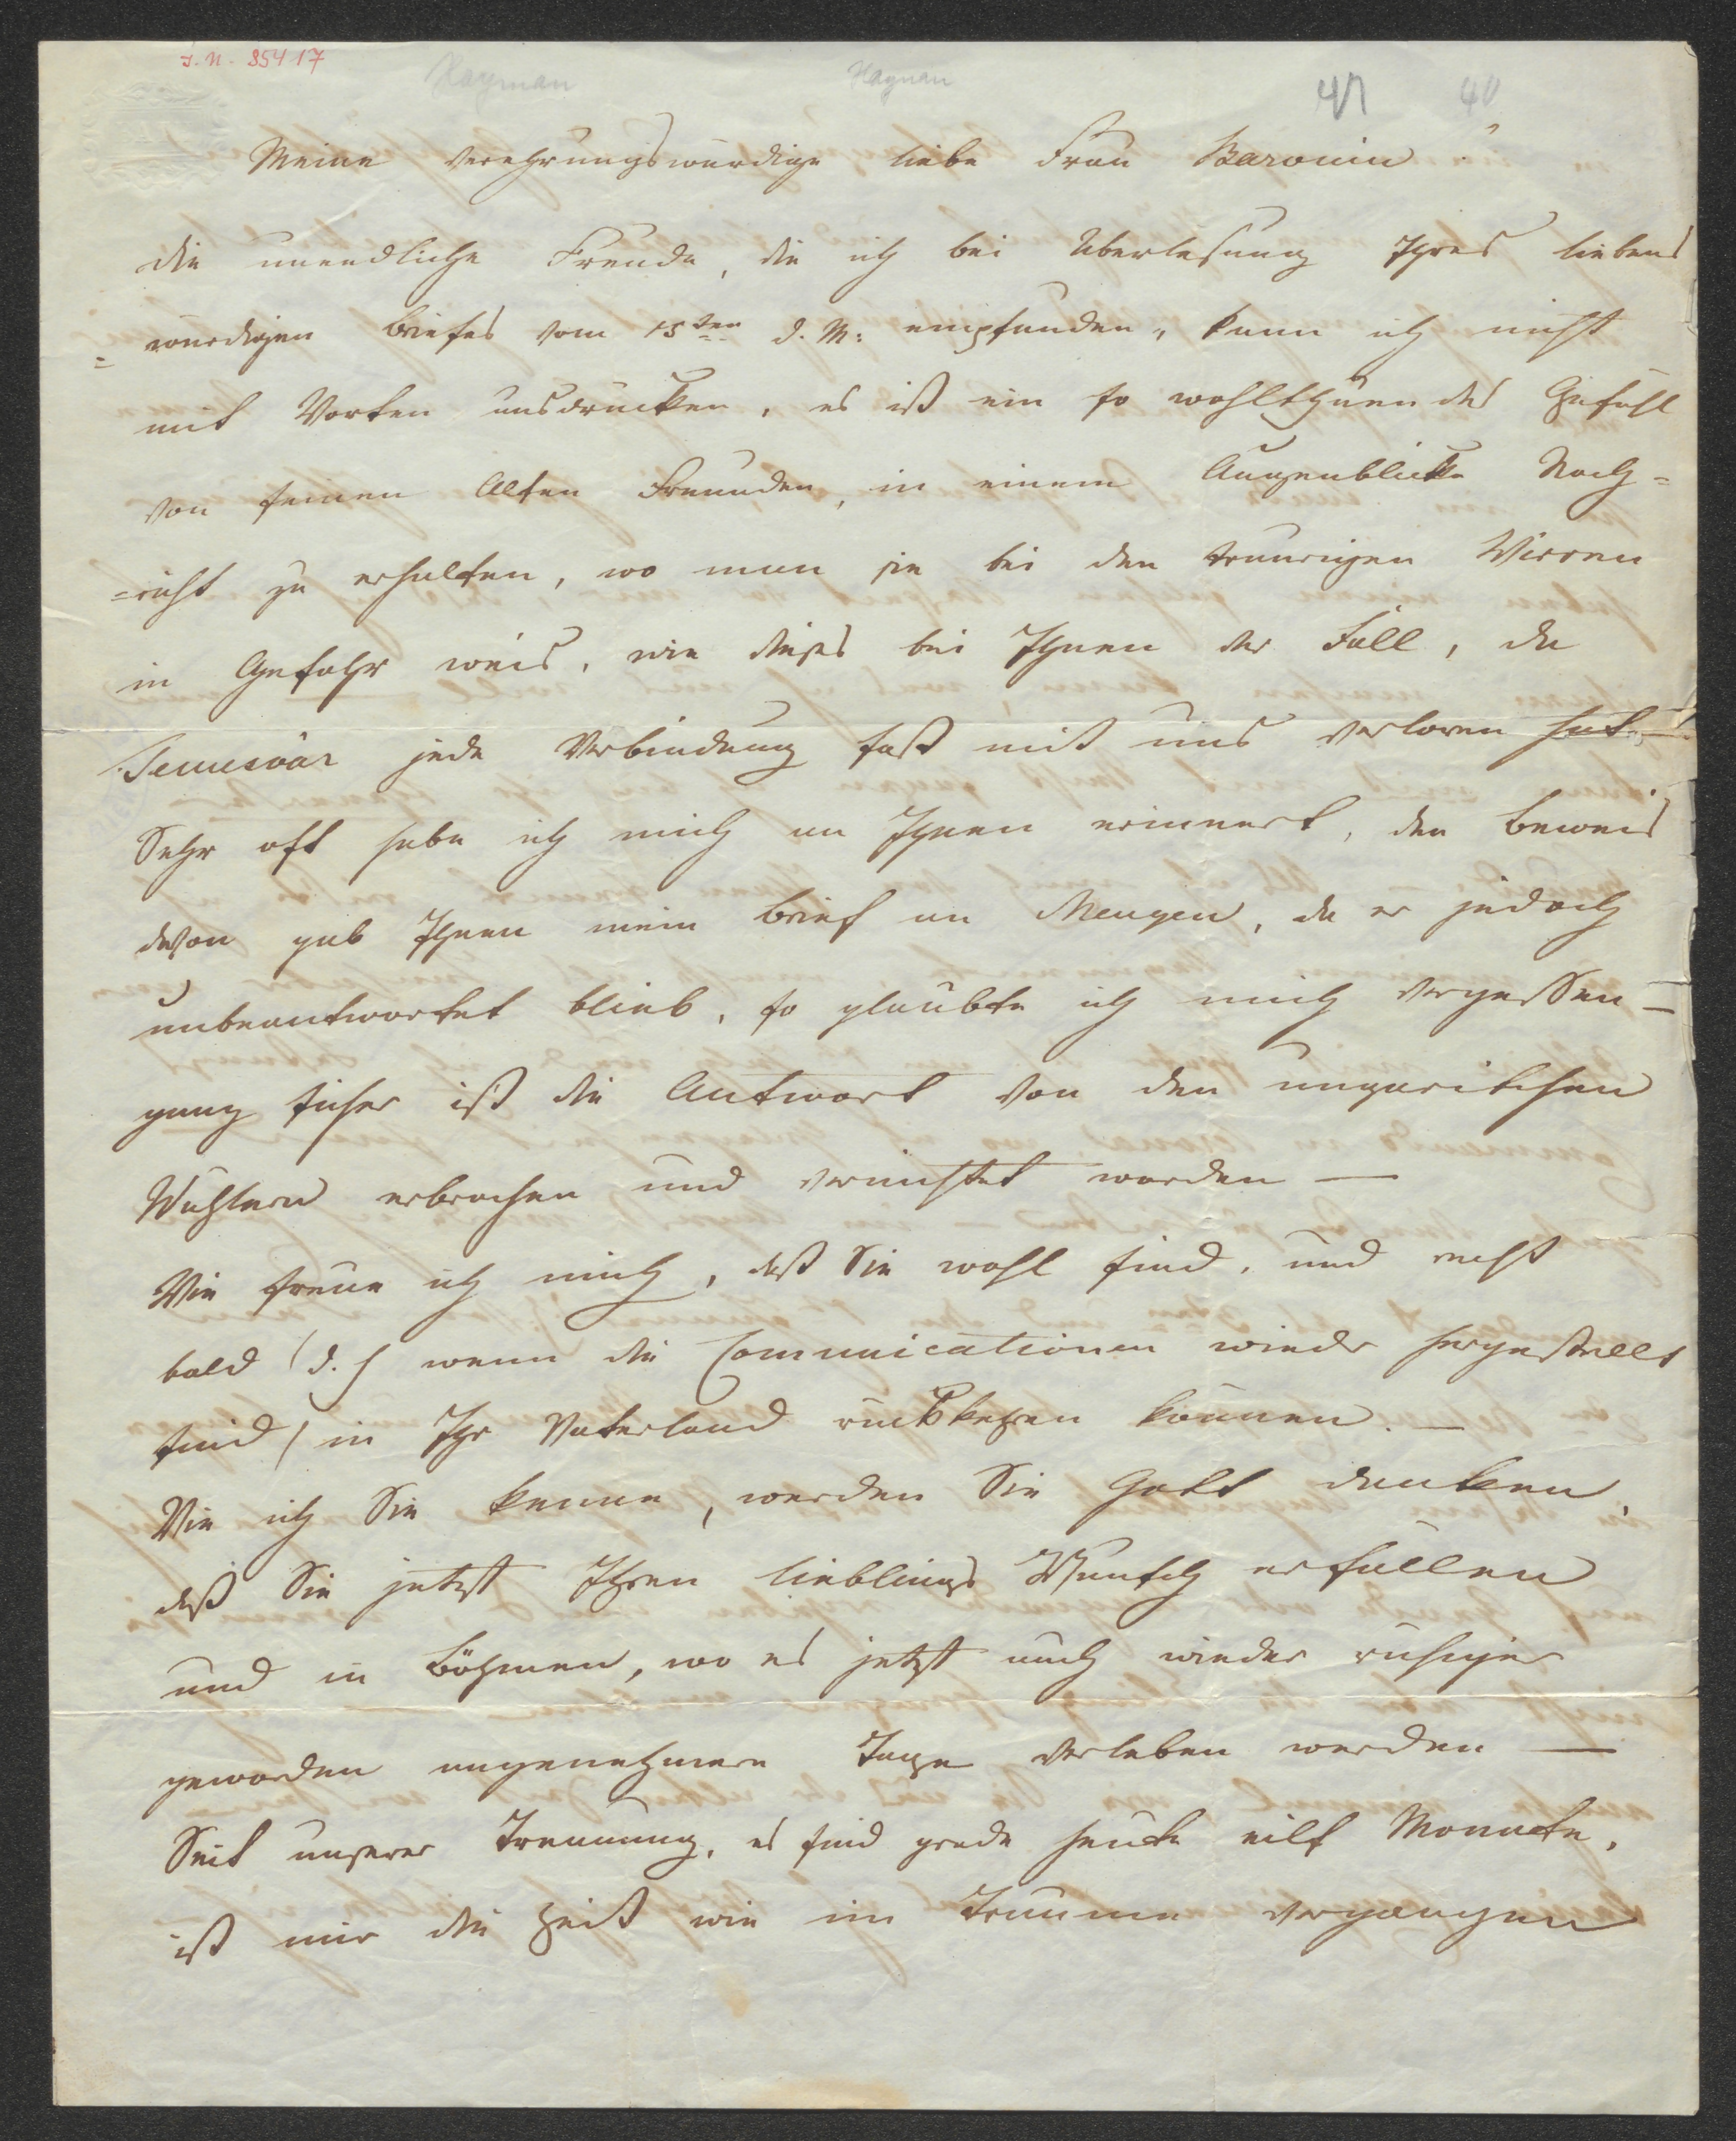 I. N. 85417
Haynau Haynau 47 40
Meine verehrungswürdige liebe Frau Baronin!
die unendliche Freude, die ich bei Überlesung Ihres liebens
= würdigen Briefes vom 15ten d. M: empfunden, kann ich nicht
mit Worten ausdrücken, es ist ein so wohlthuendes Gefühl
von seinen Alten Freunden, in einem Augenblicke Nach=
=richt zu erhalten, wo man sie bei den traurigen Wirren
in Gefahr weis, wie dieses bei Ihnen der Fall, da
Temesvár jede Verbindung fast mit uns verloren hat. –
Sehr oft habe ich mich an Ihnen erinnert, den Beweis
davon gab Ihnen mein Brief an Mengen, da er jedoch
unbeantwortet blieb, so glaubte ich mich vergessen –
ganz sicher ist die Antwort von den ungarischen
Wühlern erbrochen und vernichtet worden —
Wie freue ich mich, daß Sie wohl sind, und recht
bald (d. h wenn die Communicationen wieder hergestellt
sind) in Ihr Vaterland rückkehren können. —
Wie ich Sie kenne, werden Sie Gott danken,
daß Sie jetzt Ihren lieblings Wunsch erfüllen
und in Böhmen, wo es jetzt auch wieder ruhiger
geworden angenehmere Tage verleben werden —
Seit unserer Trennung, es sind grade heute eilf Monate,
ist mir die Zeit wie im Traume vergangen